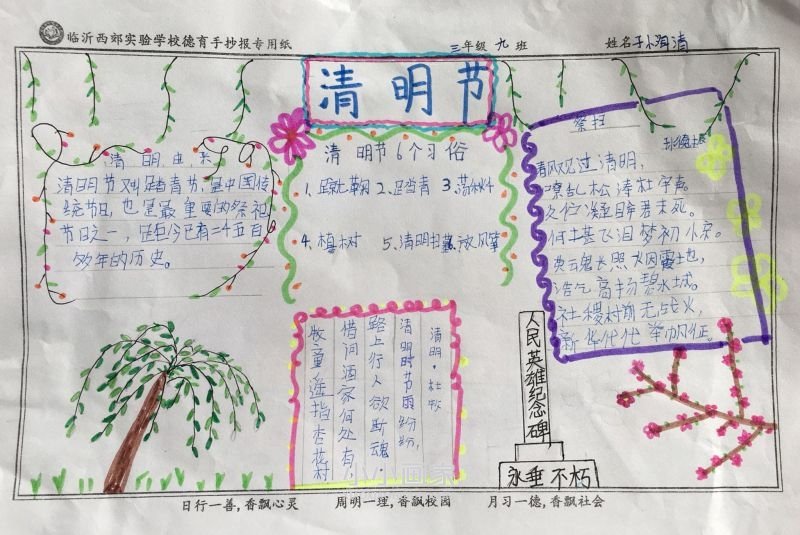 临沂西郊实验学校德育手抄报专用纸
三年级 九 班
姓名
清明节
清明由来
清明节又叫踏青节,是中国传
统节日,也是最重要的祭祖
节日之一,距今已有二千五百
多年的历史。
清明节6个习俗
1、蹴鞠 2、踏青 3、荡秋千
4、植树 5、清明扫墓 放风筝
祭扫
清风见过清明,
久仁凝目昂君未死。
何士甚飞泪梦初
英云鬼长照水因霞土也,
浩气高扬碧水城。
社稷树前无战火,
新华代代举帆征。
清明·杜牧
清明时节雨纷纷,
路上行人欲断魂。
借问酒家何处有,
牧童遥指杏花村
人民英雄纪念碑
永垂不朽
小小画家
日行一善,香飘心灵 周明一理,香飘校园 月习一德,香飘社会